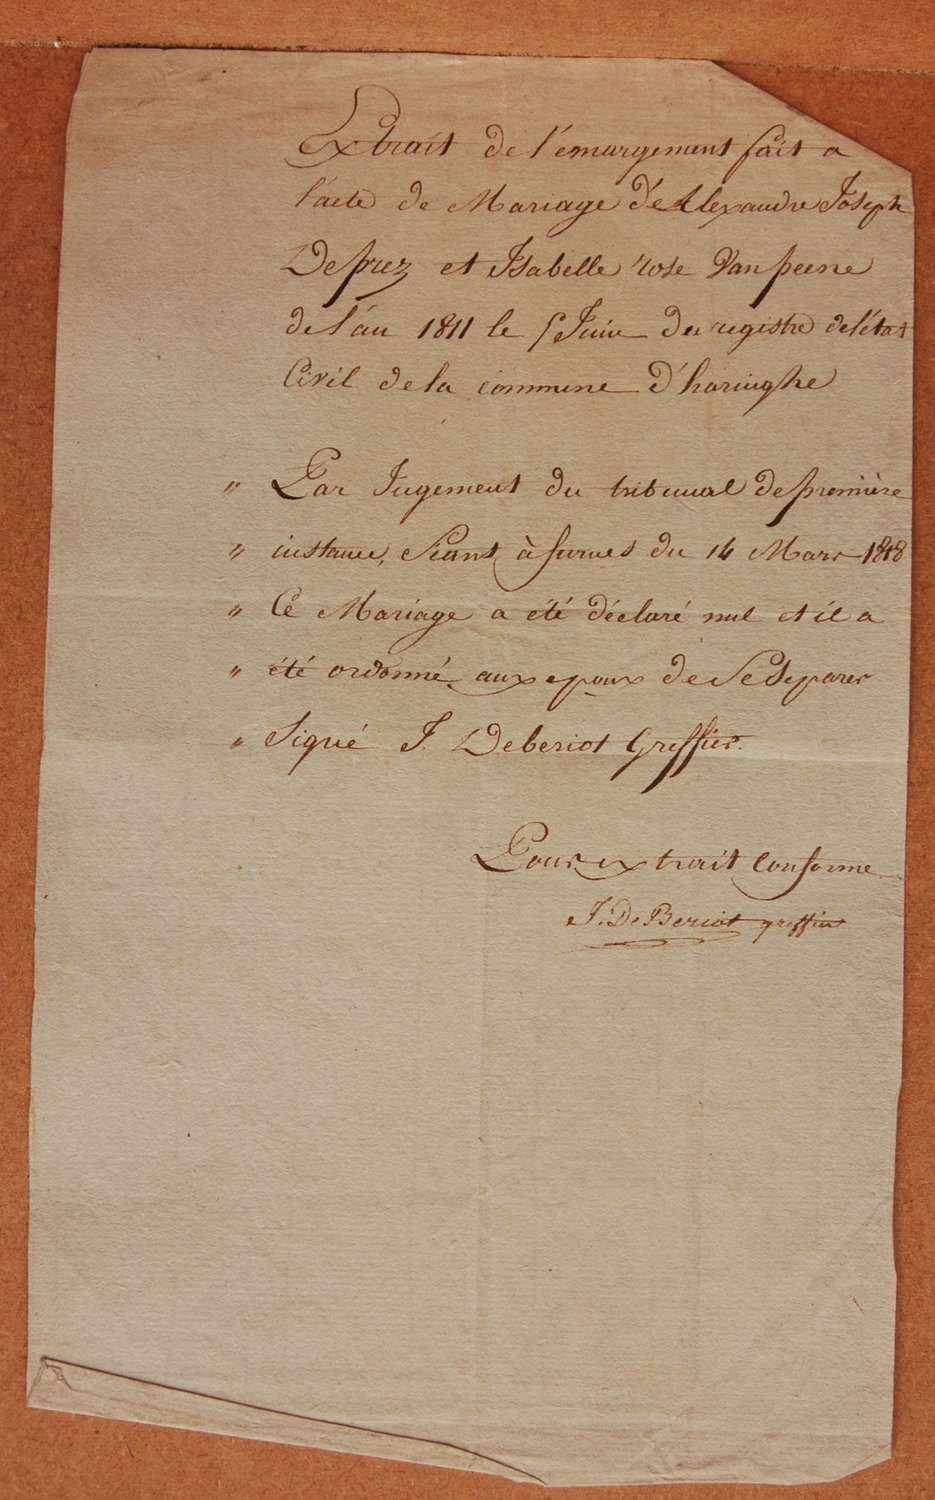 Extrait de l'emargement fait a
l'acte de Mariage d'Alexandre Joseph
Deprez et Isabelle rose Vanpeene
de l'an 1811 le 5 Juin du registre de l'état
Civil de la commune d'haringhe
" Par Jugement du tribunal de première
" instance, Séant à furnes du 14 Mars 1818
" Ce Mariage a été déclaré nul et il a
" été ordonné aux epoux de Se Séparer
" Signé J. Deberiot Greffier.
Pour extrait Conforme
J. De Beriot greffier